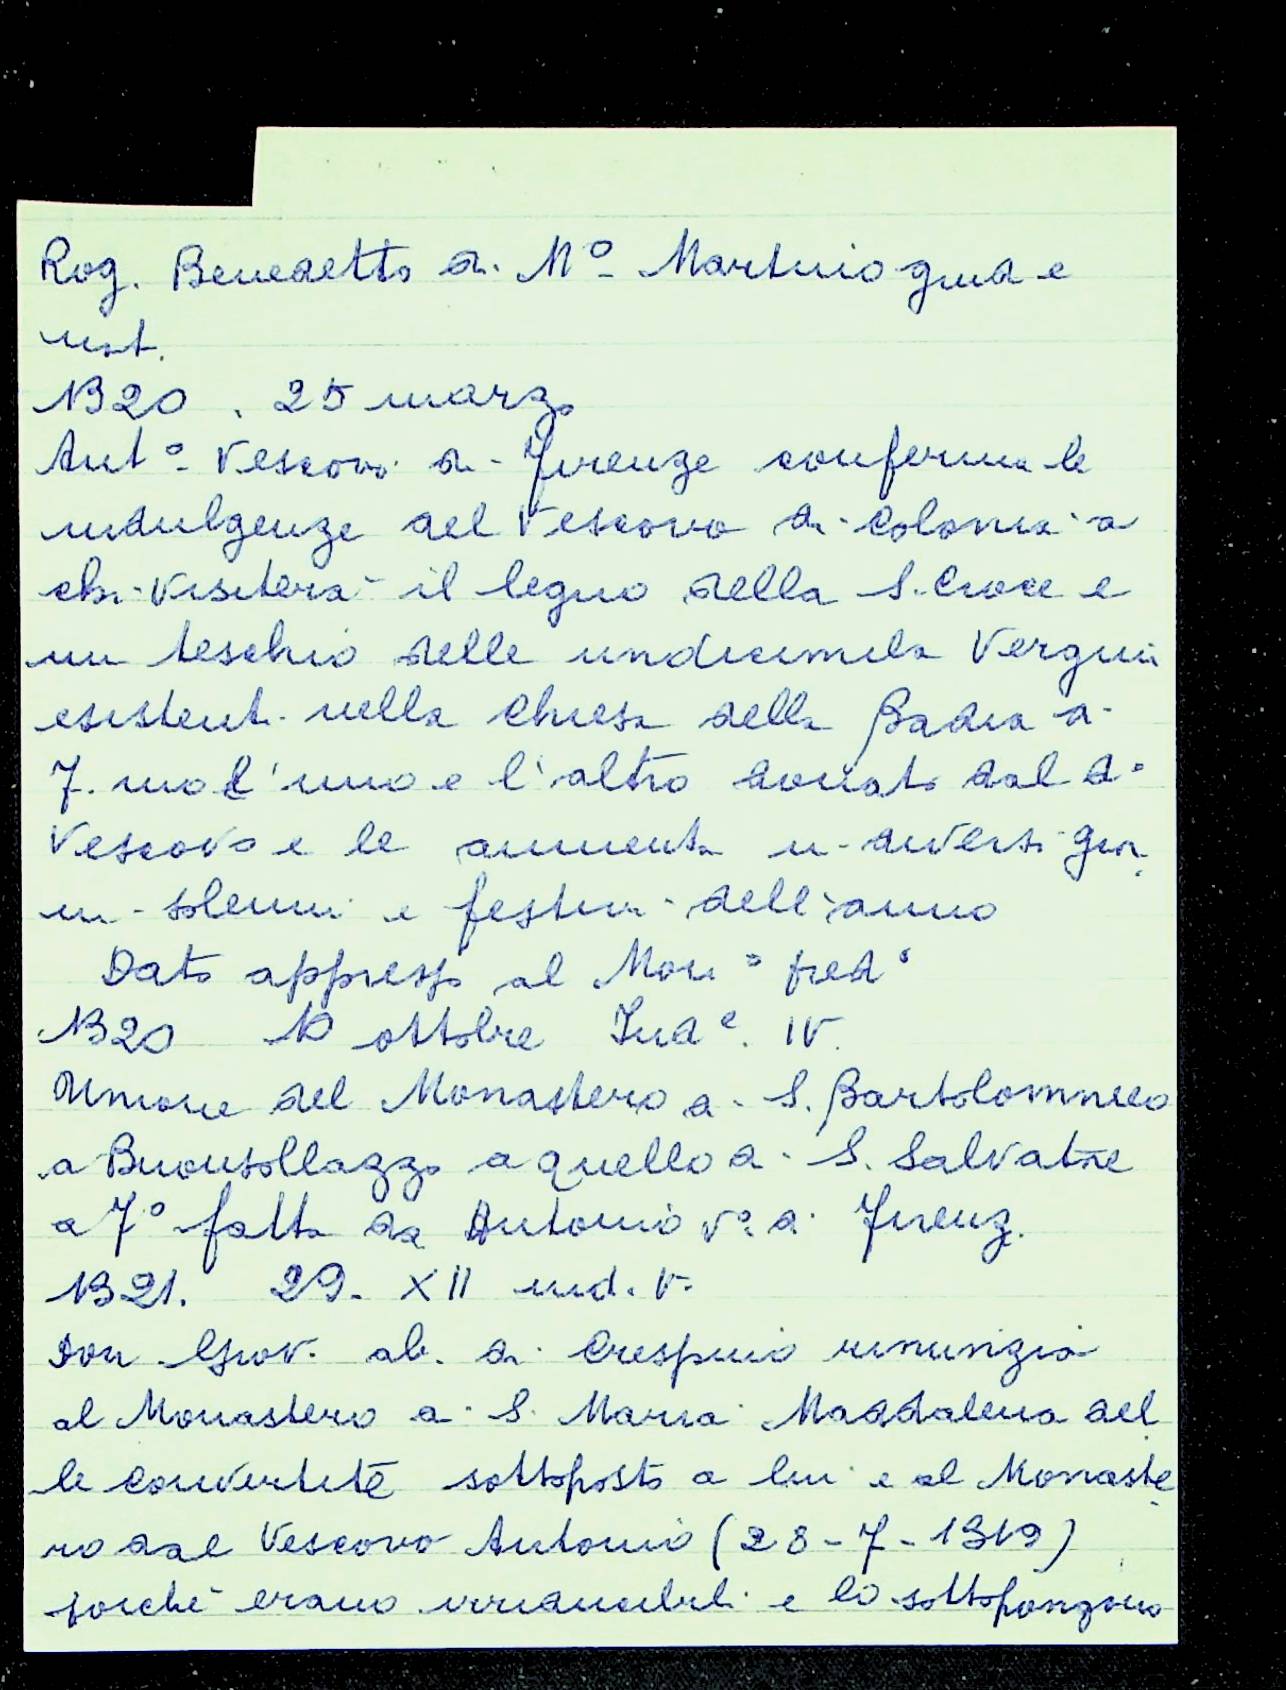 Rog. Benedetto di M° Martino giud e
not.
1320, 25 marzo
Ant° Vescovo di Firenze conferma le
indulgenze del Vescovo di Colonia a
chi visiterà il legno della S. Croce e
un teschio delle undicimila Vergini
esistenti nella Chiesa della Badia a
7.mo l'uno e l'altro donati dal d°
Vescovo e le aumenta in diversi gior
ni solenni e festivi dell'anno
Dato appresso al Mon° pred°
1320 10 ottobre Ind e. IV.
Unione del Monastero di S. Bartolommeo
a Buonsollazzo a quello di S. Salvatore
a 7° fatta da Antonio V° di Firenz.
1321. 29. XII ind. V.
Don Giov. ab. di Crespino rinunzia
al Monastero di S. Maria Maddalena del
le Convertite sottoposto a lui e al Monaste
ro dal Vescovo Antonio (28-7-1319)
poiché erano irriducibili e lo sottopongono